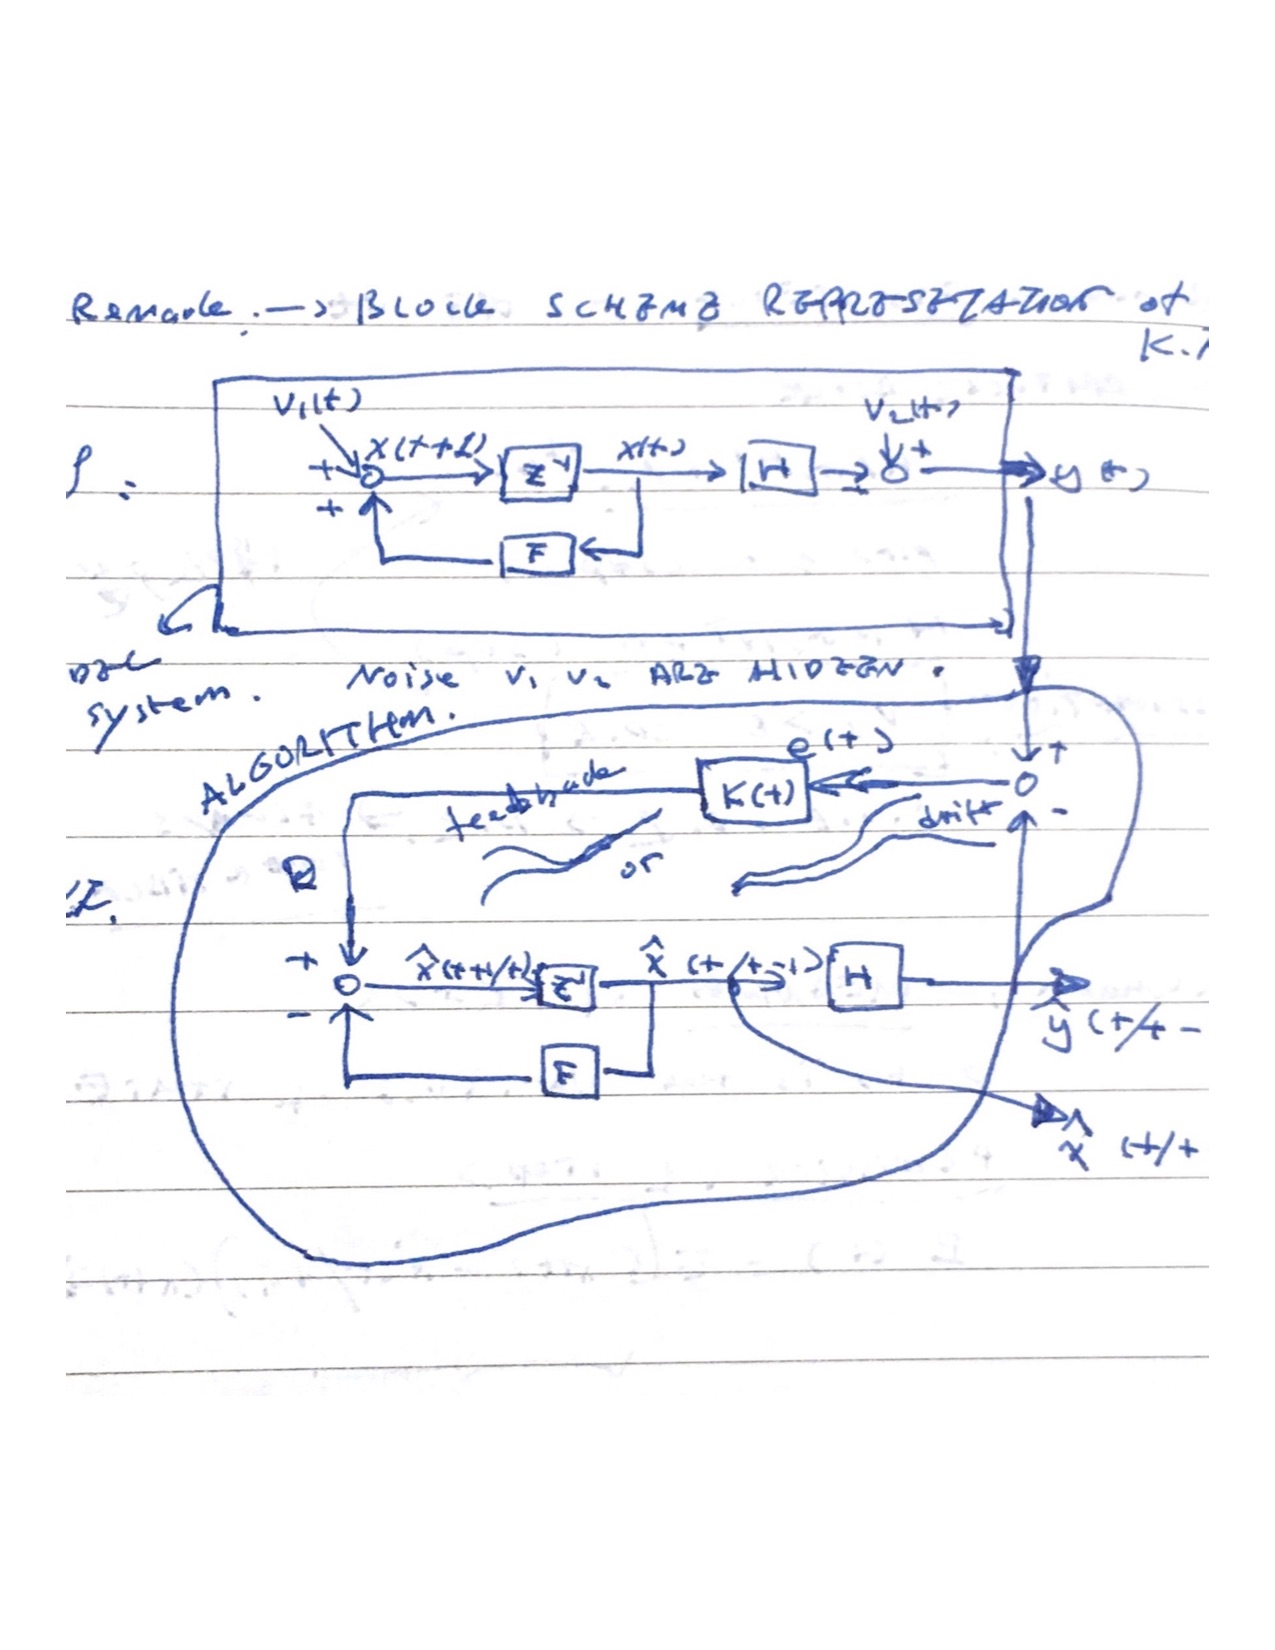 Remark. → BLOCK SCHEME REPRESETATION of
K.
V₁(t)
V₂(t)
+
x(t+1)
z⁻¹
x(t)
H
+
+
y(t)
S:
+
F
system.
Noise V₁ V₂ ARE HIDDEN.
ALGORITHM.
e(t)
+
K(t)
feedback
drift
-
or
+
x̂(t+1/t)
z⁻¹
x̂(t/t-1)
H
-
ŷ(t/t-
F
x̂(t/t